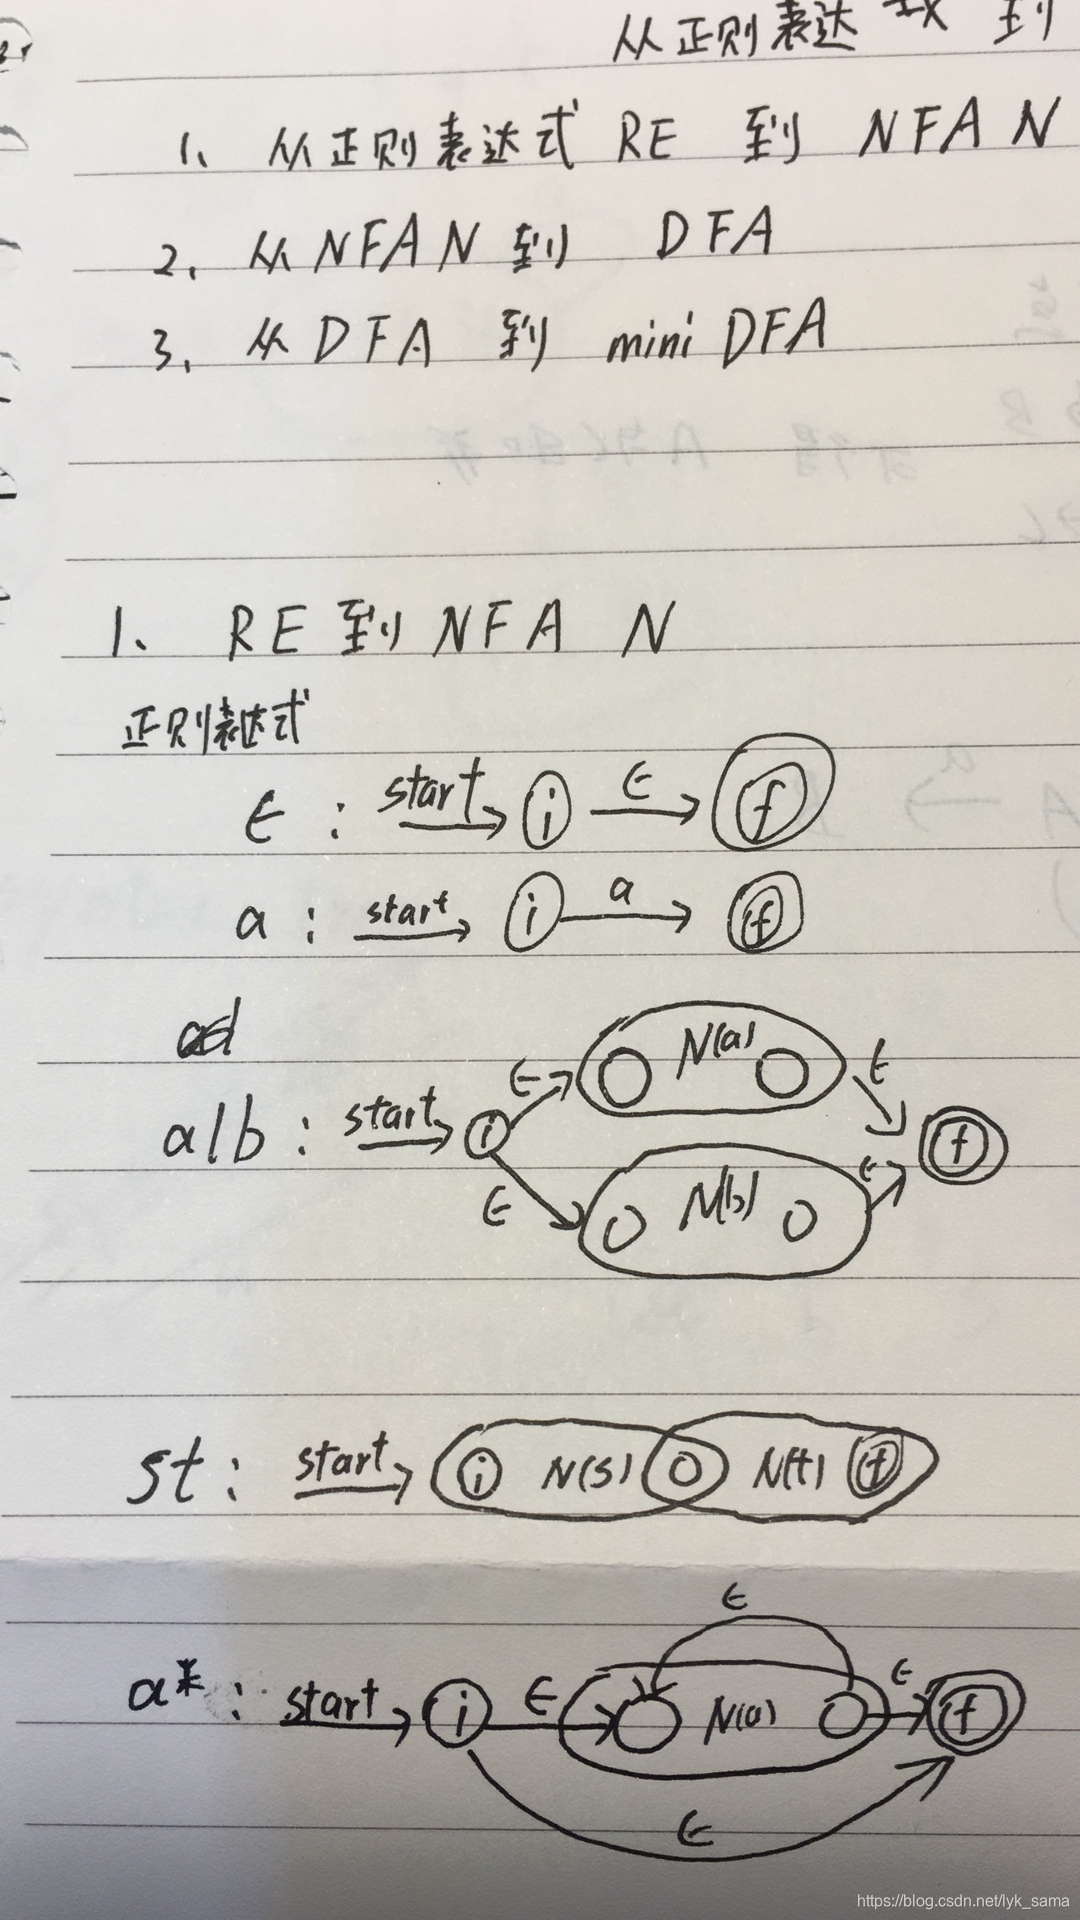 从正则表达式 到
1、从正则表达式 RE 到 NFA N
2、从 NFA N 到 DFA
3、从 DFA 到 mini DFA
1、RE 到 NFA N
正则表达式
ϵ : start i ϵ f
a : start i a f
ϵ N(a) ϵ
a|b : start i f
ϵ N(b) ϵ
st : start i N(s) N(t) f
ϵ
a* : start i ϵ N(a) ϵ f
ϵ
https://blog.csdn.net/lyk_sama